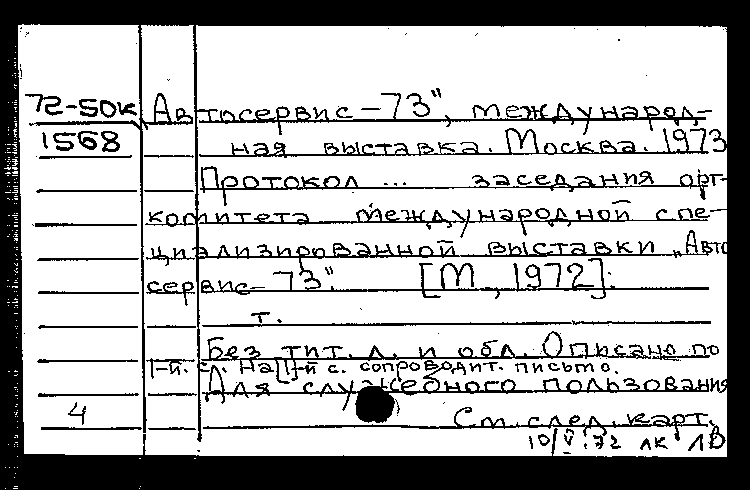 72-50к Автосервис-73", международ-
1568 ная выставка. Москва. 1973
Протокол ... заседания орг-
комитета международной спе-
циализированной выставки „Авто
сервис-73". [М., 1972].
т.
Без тит. л. и обл. Описано по
1-й. с. На [1]-й с. сопроводит. письмо.
Для служебного пользования
4 См. след. карт.
10/V.72 лк ЛВ